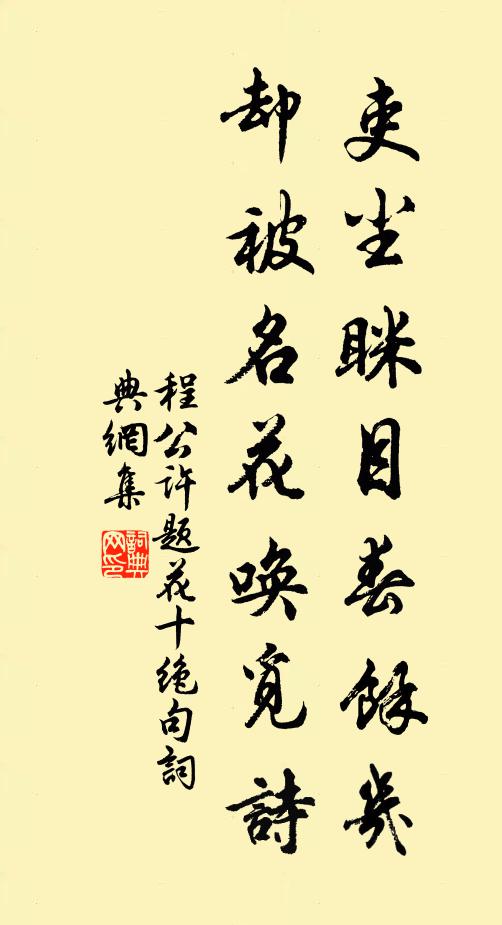 吏尘眯目春餘幾
却被名花唤覓詩
程公许题花十绝句詞
典網集
詞典网印